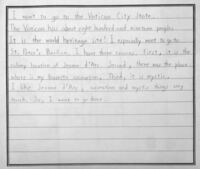 I want to go to the Vatican City State.
The Vatican has about eight hundred and nineteen peoples.
It is the world heritage site! I especially want to go to
St. Peter's Basilica. I have three reasons. First, it is the
locary location of Jeanne d'Arc. Second, there was the place
where is my favorite animation. Third, it is mystic.
I like Jeanne d'Arc, animation and mystic things very
much. So, I want to go there.